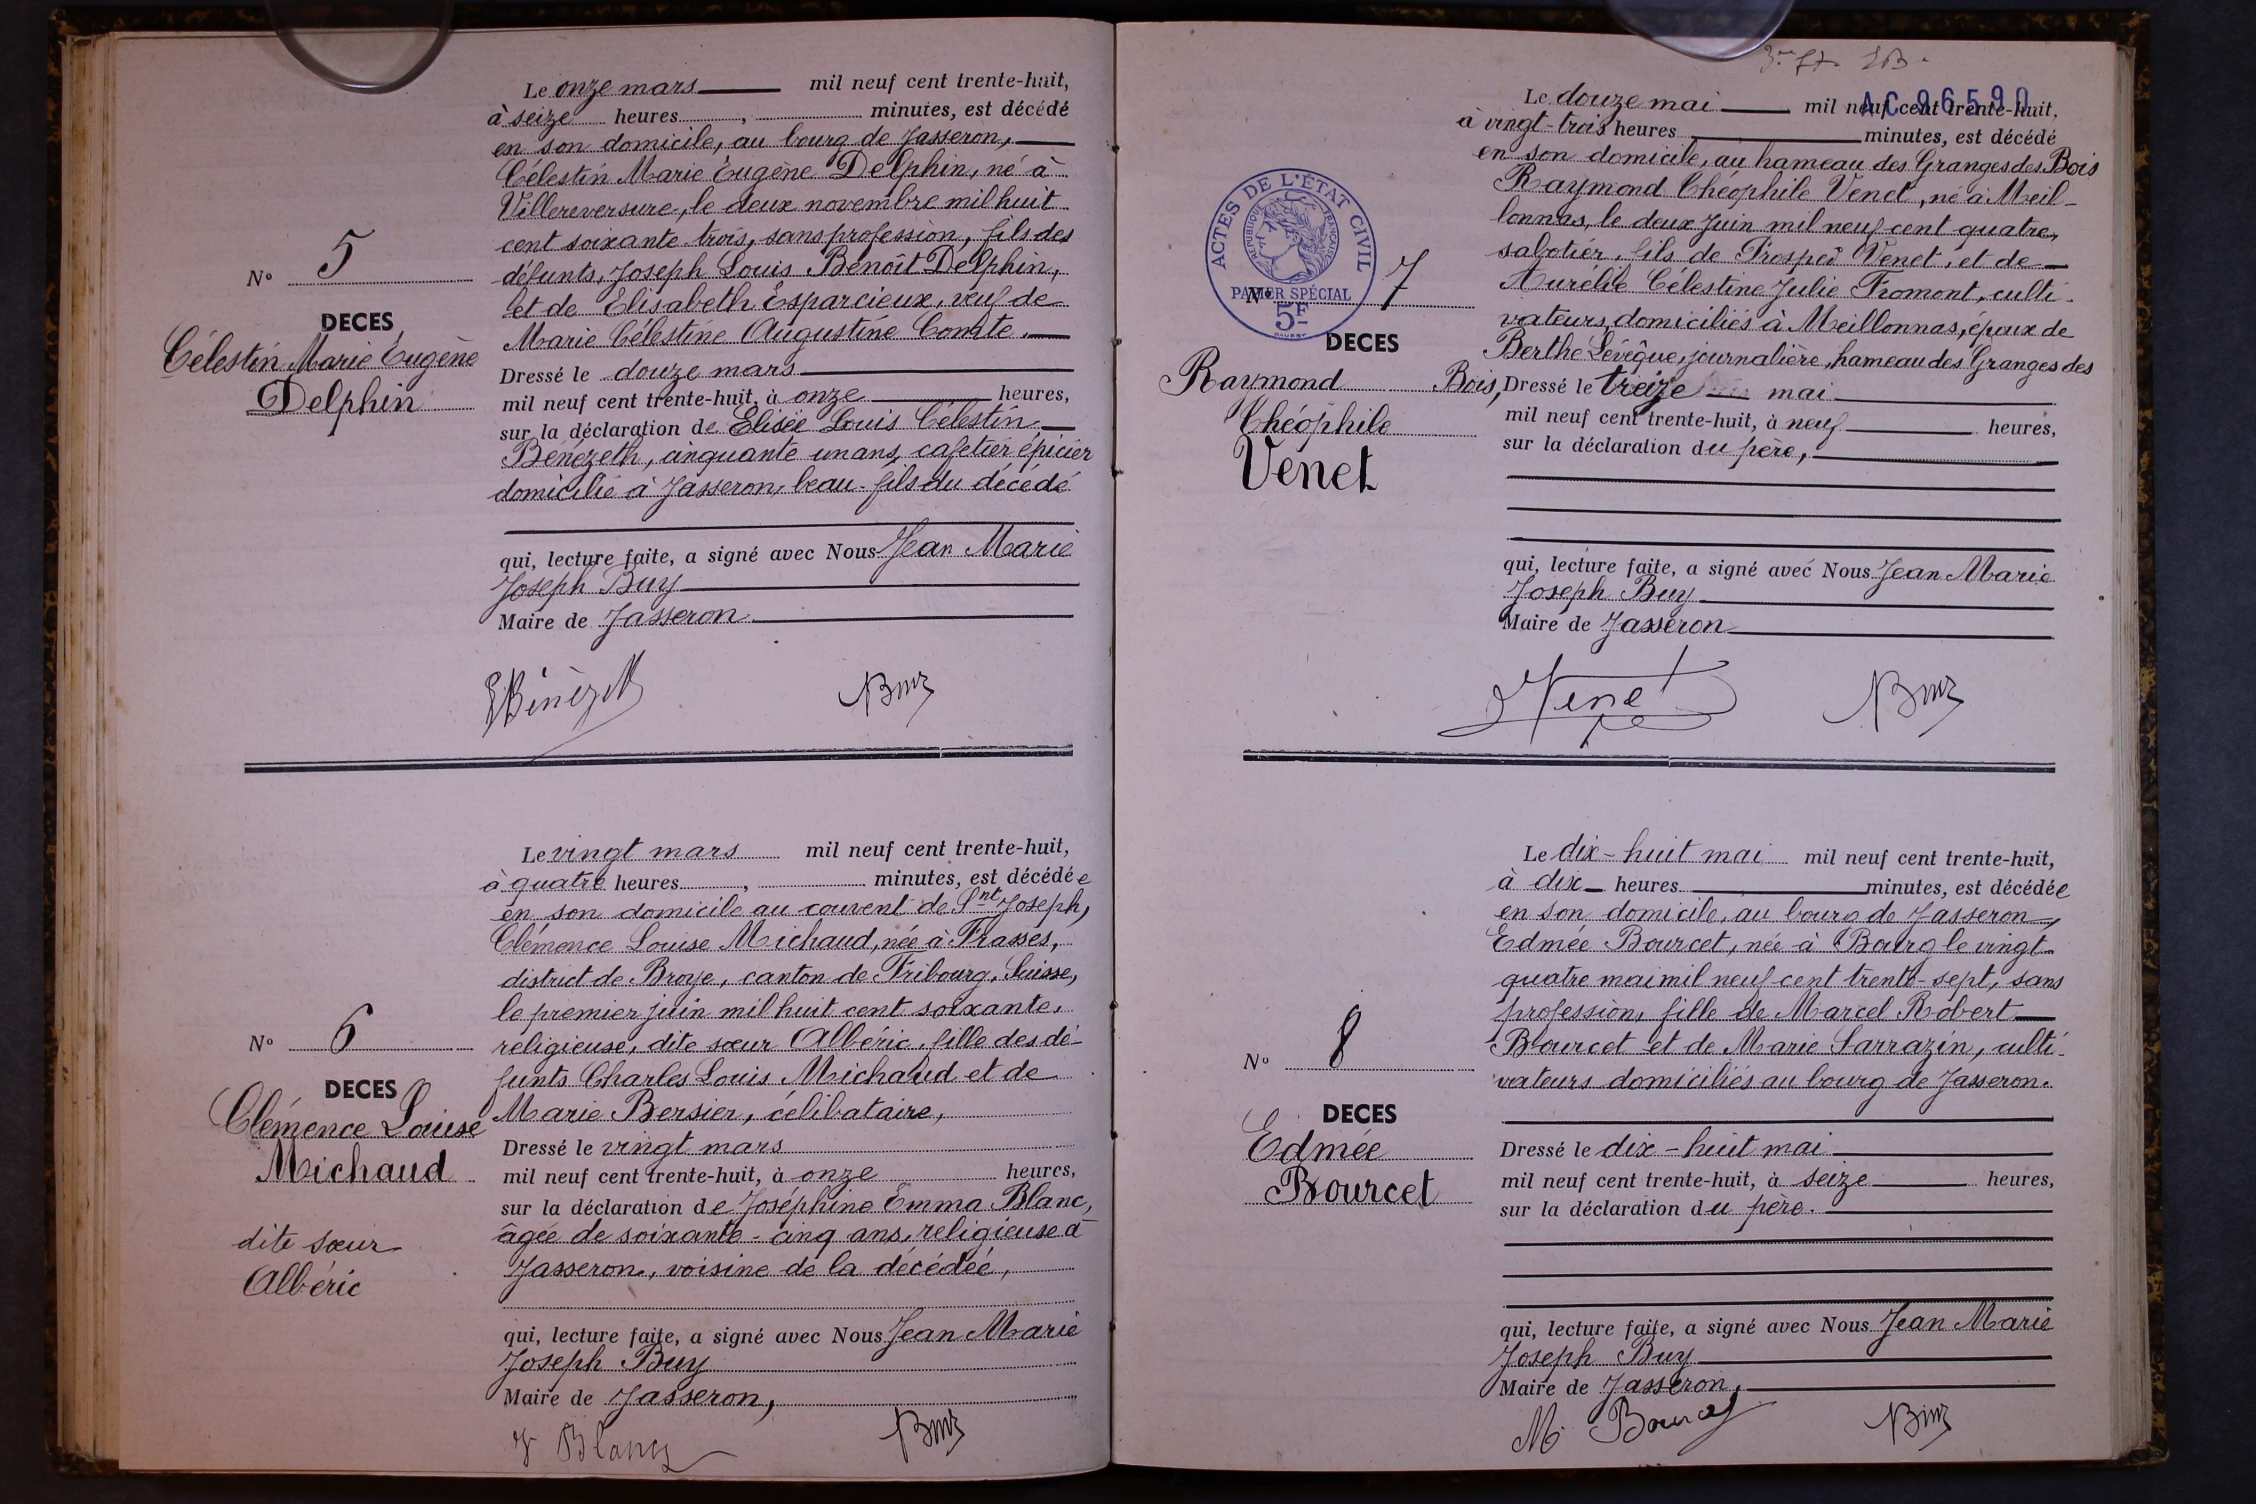 Le onze mars mil neuf cent trente-huit,
à seize heures , minutes, est décédé
en son domicile, au bourg de Jasseron,
Célestin Marie Eugène Delphin, né à
Villereversure, le deux novembre mil huit
cent soixante trois, sans profession, fils des
défunts, Joseph Louis Benoît Delphin,
et de Elisabeth Esparcieux, veuf de
Marie Célestine Augustine Comte.
Dressé le douze mars
mil neuf cent trente-huit, à onze heures,
sur la déclaration de Elisée Louis Célestin
Bénézeth, cinquante un ans, cafetier épicier
domicilié à Jasseron, beau-fils du décédé
qui, lecture faite, a signé avec Nous Jean Marie
Joseph Buy
Maire de Jasseron
N° 5
DECES
Célestin Marie Eugène
Delphin
EBénézeth Buy
Le vingt mars mil neuf cent trente-huit,
à quatre heures , minutes, est décédée
en son domicile au couvent de Snt Joseph,
Clémence Louise Michaud, née à Frasses,
district de Broye, canton de Fribourg, Suisse,
le premier juin mil huit cent soixante,
religieuse, dite sœur Albéric, fille des dé-
funts Charles Louis Michaud et de
Marie Bersier, célibataire,
Dressé le vingt mars
mil neuf cent trente-huit, à onze heures,
sur la déclaration de Joséphine Emma Blanc,
âgée de soixante-cinq ans, religieuse à
Jasseron, voisine de la décédée,
qui, lecture faite, a signé avec Nous Jean Marie
Joseph Buy
Maire de Jasseron,
N° 6
DECES
Clémence Louise
Michaud
dite sœur
Albéric
J Blanc Buy
AC 96590
Le douze mai mil neuf cent trente-huit,
à vingt-trois heures minutes, est décédé
en son domicile, au hameau des Granges des Bois
Raymond Théophile Venet, né à Meil-
lonnas, le deux juin mil neuf cent quatre,
sabotier, fils de Prosper Venet, et de
Aurélie Célestine Julie Fromont, culti-
vateurs domiciliés à Meillonnas, époux de
Berthe Lévêque, journalière, hameau des Granges des
Bois, Dressé le treize mai
mil neuf cent trente-huit, à neuf heures,
sur la déclaration du père,
qui, lecture faite, a signé avec Nous Jean Marie
Joseph Buy
Maire de Jasseron
ACTES DE L'ÉTAT CIVIL
RÉPUBLIQUE FRANÇAISE
PAPIER SPÉCIAL
5F
N° 7
DECES
Raymond
Théophile
Venet
Venet Buy
Le dix-huit mai mil neuf cent trente-huit,
à dix heures minutes, est décédée
en son domicile, au bourg de Jasseron,
Edmée Bourcet, née à Bourg le vingt
quatre mai mil neuf cent trente-sept, sans
profession, fille de Marcel Robert
Bourcet et de Marie Sarrazin, culti-
vateurs domiciliés au bourg de Jasseron.
Dressé le dix-huit mai
mil neuf cent trente-huit, à seize heures,
sur la déclaration du père.
qui, lecture faite, a signé avec Nous Jean Marie
Joseph Buy
Maire de Jasseron,
N° 8
DECES
Edmée
Bourcet
M. Bourcet Buy